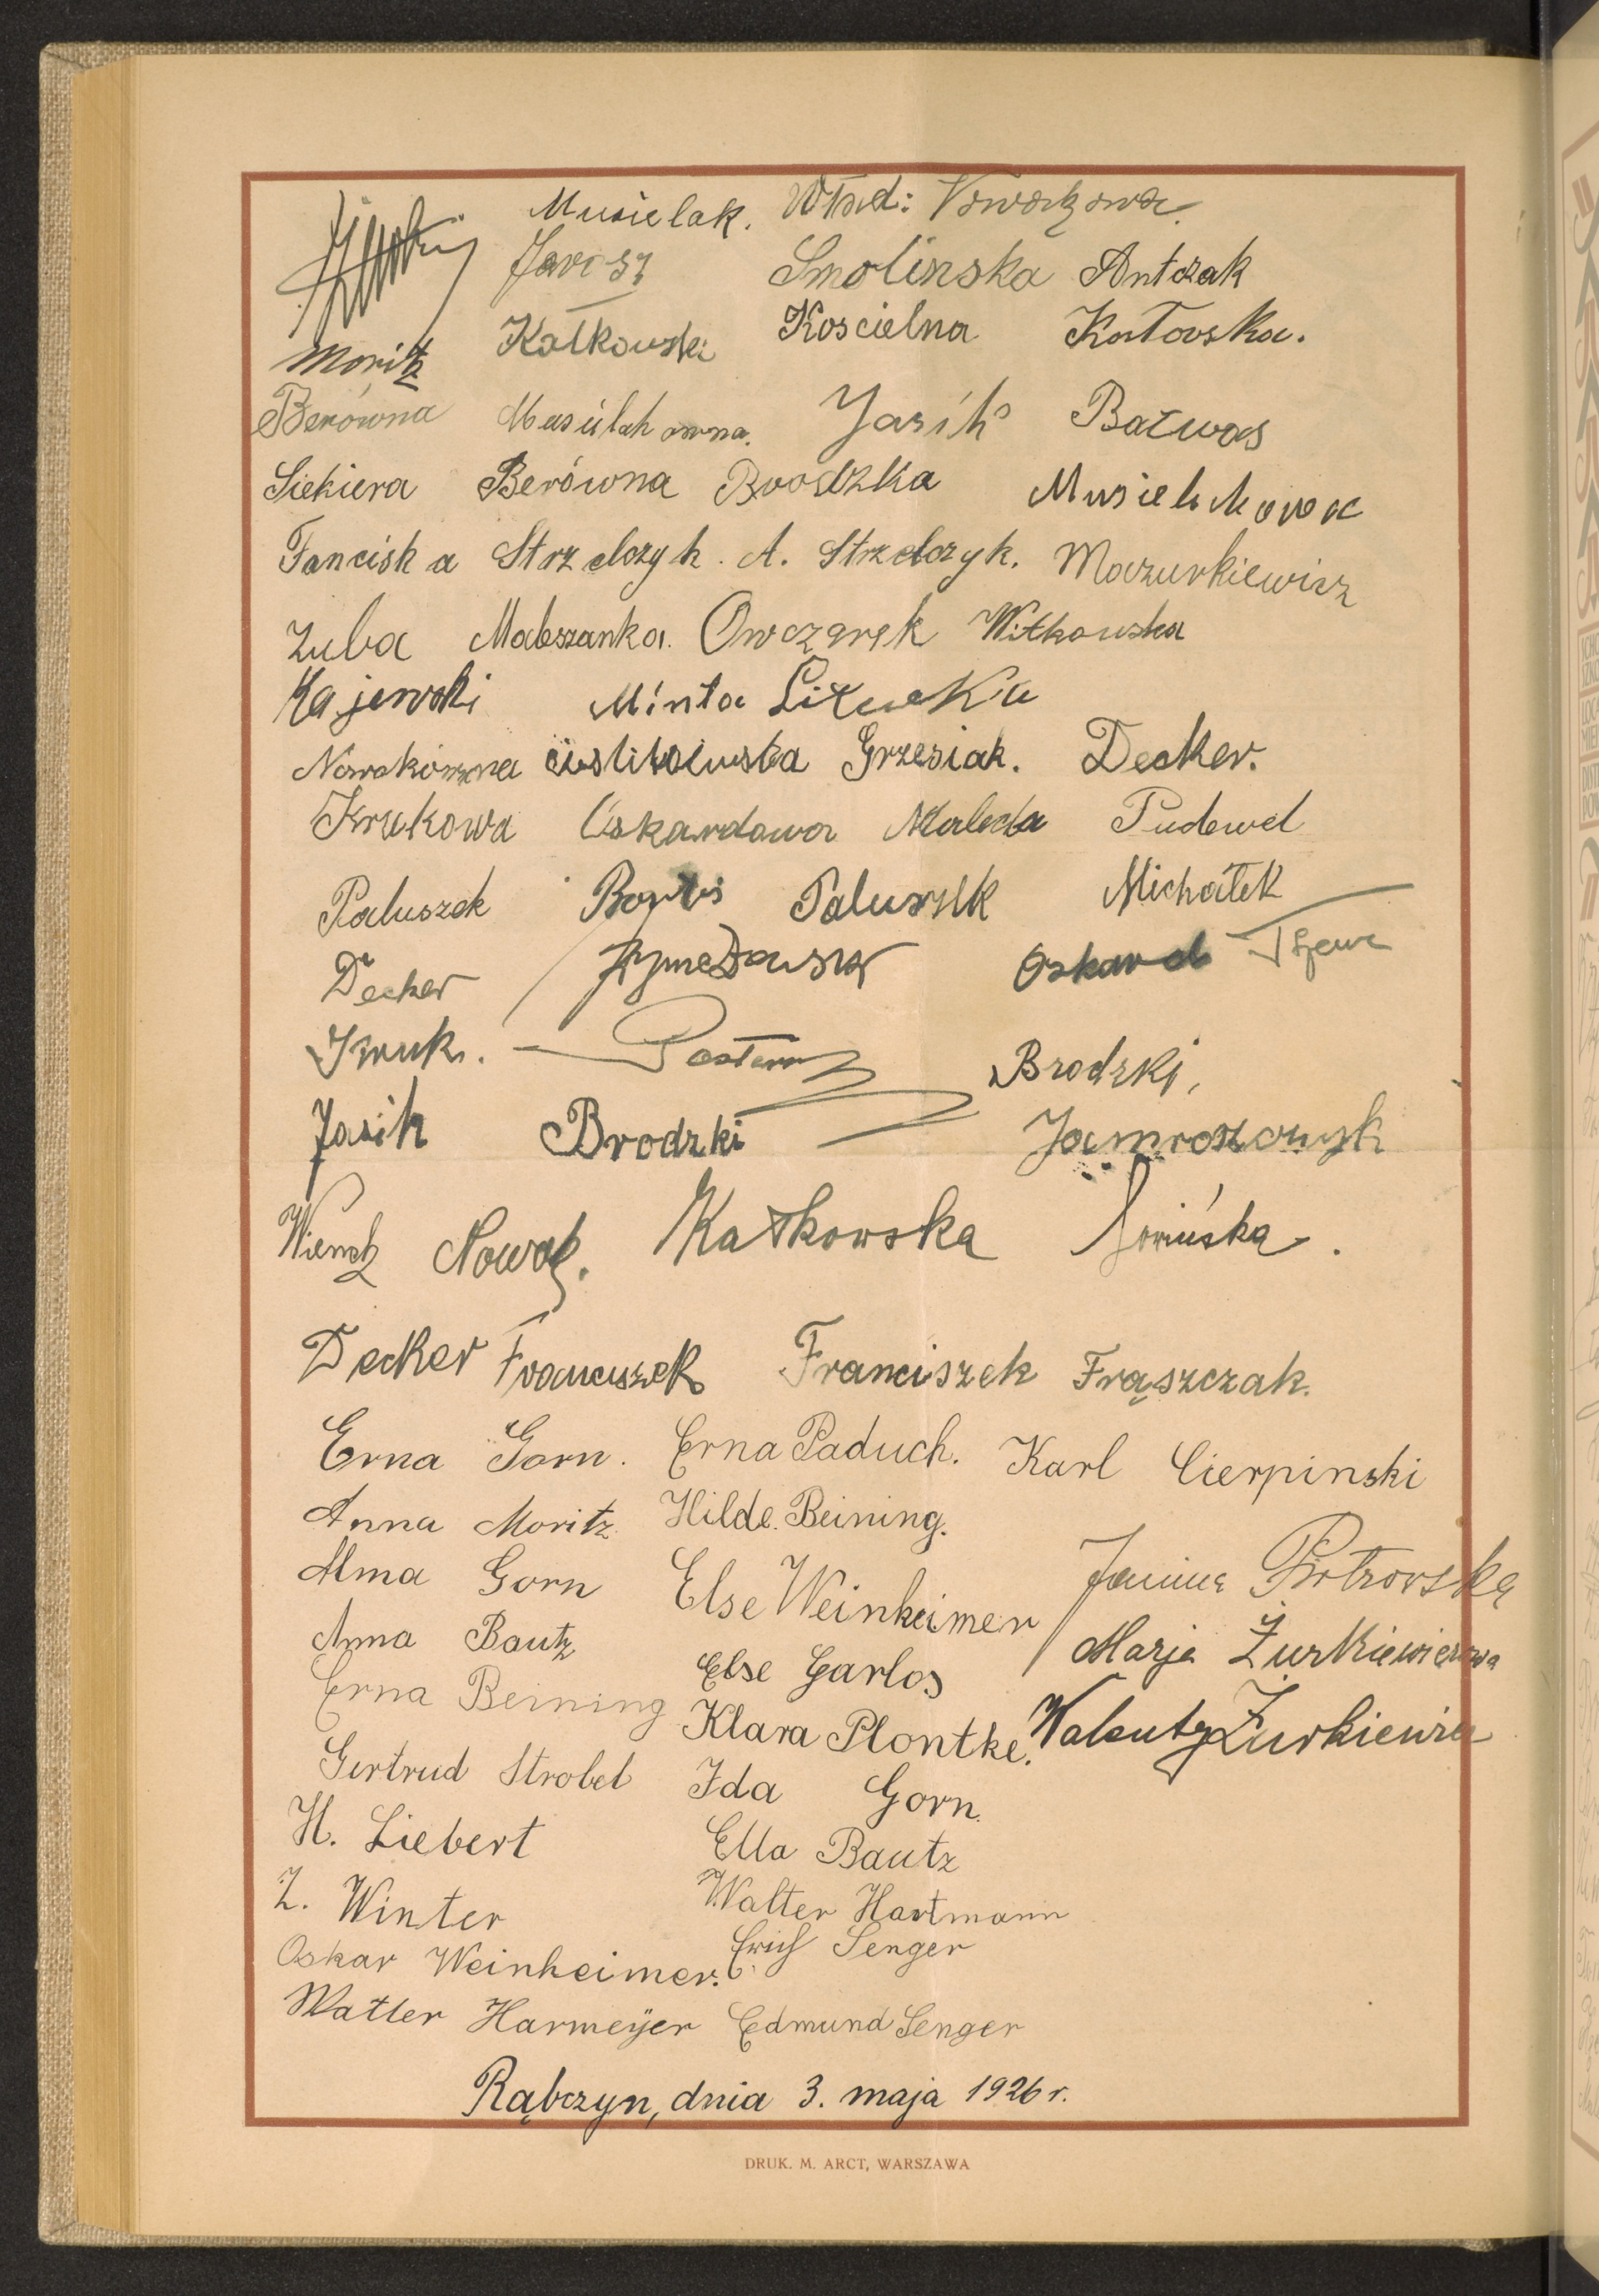 Musielak. Wład: Nowaczowa
Jarosz Smolinska Antczak
Moritz Kałkowski Koscielna Katowska.
Berówna Jasik Bałwas
Siekiera Berówna Brodzka Musielakowa
Fanciska Strzelczyk. A. Strzelczyk. Mazurkiewicz
Zuba Maleszanka. Owczarek Witkowska
Kajewski Minta
Nowakówna Grzesiak. Decker.
Krukowa Oskardowa Maleda Pudewel
Paluszek Paluszek Michałek
Decker Oskard
Kruk. Brodzki,
Jasik Brodzki Jamroszczyk
Nowak. Katkowska
Decker Franciszek Franciszek Frąszczak.
Erna Gorn. Erna Paduch. Karl Cierpinski
Anna Moritz. Hilde. Beining.
Alma Gorn Else Weinheimer Janina Piotrowska
Anna Bautz Else Garlos Marja Żurkiewiczowa
Erna Beining Klara Plontke. Walenty Żurkiewicz
Gertrud Strobel Ida Gorn
H. Liebert Ella Bautz
Z. Winter Walter Hartmann
Oskar Weinheimer. Erich Senger
Walter Harmeÿer Edmund Senger
Rąbczyn, dnia 3. maja 1926 r.
DRUK. M. ARCT, WARSZAWA